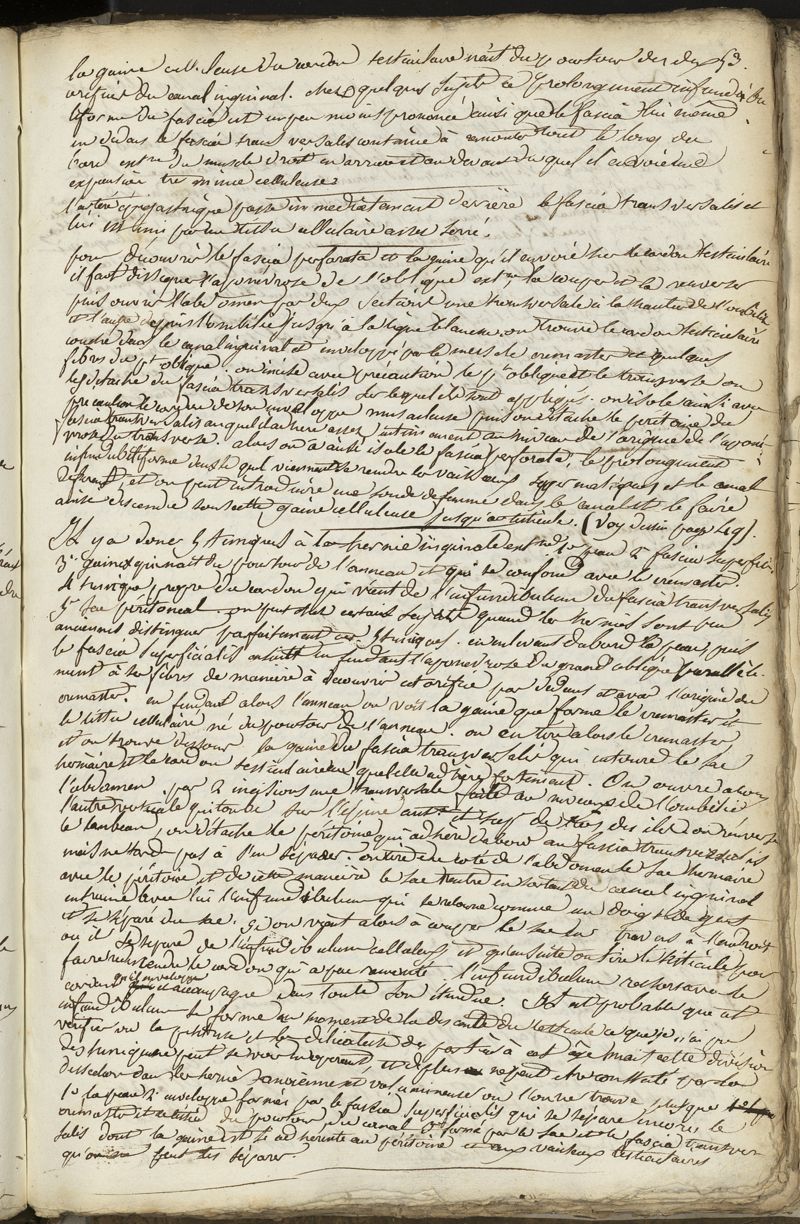 la gaine celluleuse du cordon testiculaire nait du pourtour des deux 53.
orifices du canal inguinal. chez quelques sujets ce prolongement infundibu
liforme du fascia est un peu moins prononcé ainsi que le fascia lui même
en dedans le fascia transversalis continue à remonter tout le long du
bord ext^ne du muscle droit en arriere et au devant duquel il envoie une
expansion tres mince celluleuse.
l'artère épigastrique passe immédiatement derrière le fascia transversalis et
lui est uni par un tissu cellulaire assez serré.
pour découvrir le fascia perforata et la gaine qu'il envoie sur le cordon testiculaire
il faut dissequer l'aponévrose de l'oblique ext^ne la couper et la renverser
puis ouvrir l'abdomen par deux sections une transversale à la hauteur de l'ombilic
et l'autre depuis l'ombilic jusqu'à la ligne blanche. on trouve le cordon testiculaire
couché dans le canal inguinal et enveloppé par le muscle cremaster et quelques
fibres du p^t oblique. on incise avec précaution le p^t oblique et le transverse on
les détache du fascia transversalis sur lequel ils sont appliqués. on isole ainsi avec
précaution le cordon de son enveloppe musculeuse puis on détache le peritoine du
fascia transversalis auquel il adhere assez intimement au niveau de l'origine de l'aponé
vrose du transverse. alors on a ainsi isolé le fascia perforata, le prolongement
infundibuliforme dans lequel viennent se rendre les vaisseaux spermatiques et le canal
déférent et on peut introduire une sonde de femme dans le canal et le faire
ainsi descendre sous cette gaine celluleuse jusqu'au testicule. (Voy dessin page 49).
Il y a donc 5 tuniques à la hernie inguinale ext^ne 1° peau 2° fascia superficialis
3° gaine qui nait du pourtour de l'anneau et qui se confond avec le cremaster.
4 tunique propre du cordon qui vient de l'infundibulum du fascia transversalis
5° sac péritoneal. on peut chez certains sujets quand les hernies sont peu
anciennes distinguer parfaitement ces 5 tuniques. en enlevant d'abord la peau, puis
le fascia superficialis ensuite en fendant l'aponévrose du grand oblique parallèle-
ment à ses fibres de manière à découvrir cet orifice par dedans et avec l'origine du
cremaster. en fendant alors l'anneau on voit la gaine que forme le cremaster et
le tissu cellulaire né du pourtour de l'anneau. on enlève alors le cremaster
et on trouve dessous la gaine du fascia transversalis qui entoure le sac
herniaire et le cordon testiculaire auquel elle adhère fortement. On ouvre alors
l'abdomen par 2 incisions une transversale faite au niveau de l'ombilic
l'autre verticale qui tombe sur l'épine ant et sup de l'os des iles on renverse
le lambeau, on détache le péritoine qui adhère d'abord au fascia transversalis
mais ne tarde pas à s'en séparer. on tire du coté de l'abdomen le sac herniaire
avec le péritoine et de cette manière le sac rentre en sortant du canal inguinal
entraine avec lui l'infundibulum qui se retourne comme un doigt de gant
et se sépare du sac. Si on vient alors à couper le sac en travers à l'endroit
où il se sépare de l'infundibulum celluleux et qu'ensuite on tire le testicule pour
faire redescendre le cordon qui a peu remonté l'infundibulum ressortira le
cordon qu'il enveloppe et accompagne dans toute son étendue. Il est probable que cet
infundibulum se forme au moment de la descente du testicule ce que je n'ai pu
vérifier vu la petitesse et la délicatesse des parties à cet âge mais cette division
des tuniques peut se voir rarement, et de plus ne peut etre constatée par la
dissection dans les hernies anciennes et volumineuses on trouve plus que
1° la peau 2° enveloppe formée par le fascia superficialis qui se sépare encore le
cremaster et le tissu du pourtour du canal 3° formé par le sac et le fascia transver
salis dont la gaine est si adherente au péritoine et aux vaisseaux testiculaires
qu'on ne peut les séparer